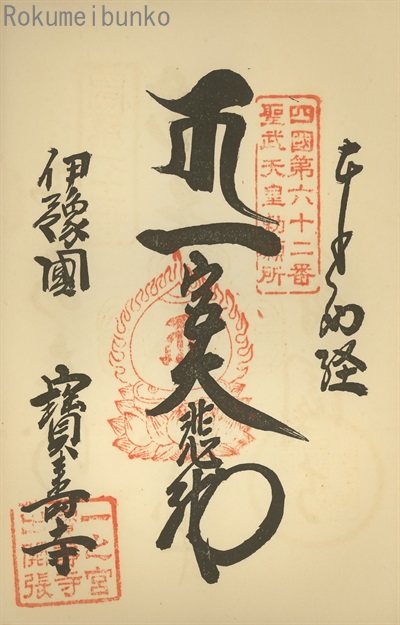 Rokumeibunko
奉納経
四國第六十二番
聖武天皇勅願所
一宮大悲殿
伊豫國
寶壽寺
一之宮
寺
開張